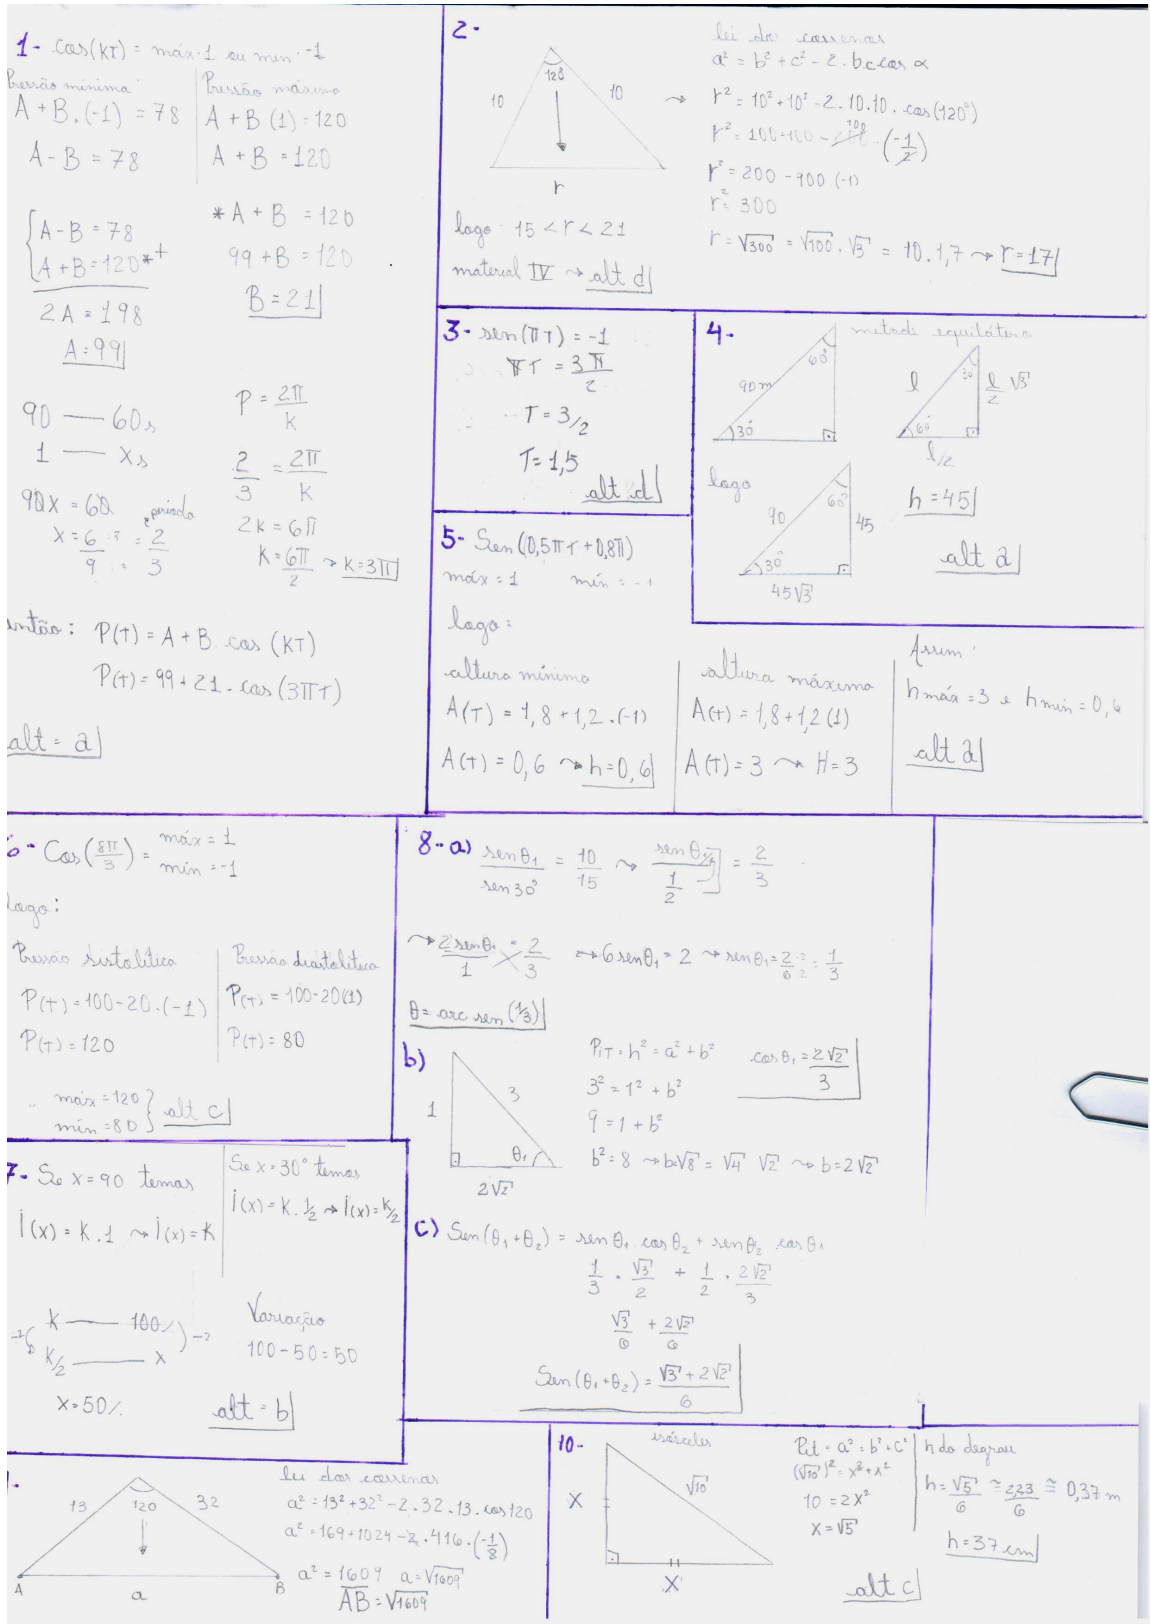 1- Cos(KT) = máx 1 ou min -1
Pressão mínima
A + B.(-1) = 78
A - B = 78
Pressão máxima
A + B (1) = 120
A + B = 120
A - B = 78
A + B = 120 * +
2A = 198
A = 99
* A + B = 120
99 + B = 120
B = 21
90 — 60s
1 — Xs
90X = 60
X = 6/9 :3 = 2/3 período
P = 2π/K
2/3 = 2π/K
2K = 6π
K = 6π/2 → K = 3π
então: P(T) = A + B. cos (KT)
P(T) = 99 + 21. cos (3πT)
alt = a
2-
120°
10
10
r
logo 15 < r < 21
material IV → alt d
lei dos cossenos
a² = b² + c² - 2. b.c.cos α
→ r² = 10² + 10² - 2. 10. 10. cos(120°)
r² = 100 + 100 - 200 100 . (-1/2)
r² = 200 - 100 (-1)
r² = 300
r = √300 = √100 . √3 = 10. 1,7 → r = 17
3- sen(πT) = -1
πT = 3π/2
T = 3/2
T = 1,5
alt d
4-
60°
90m
30°
metade equilátero
l
30°
l/2 √3
60°
l/2
logo
90
60°
45
30°
45√3
h = 45
alt a
5- Sen(0,5πT + 0,8π)
máx = 1 mín = -1
logo:
altura mínima
A(T) = 1,8 + 1,2 . (-1)
A(T) = 0,6 → h = 0,6
altura máxima
A(T) = 1,8 + 1,2 (1)
A(T) = 3 → H = 3
Assim:
h máx = 3 e h mín = 0,6
alt a
6- Cos(8π/3) = máx = 1
mín = -1
logo:
Pressão sistolítica
P(T) = 100 - 20 . (-1)
P(T) = 120
Pressão diastolítica
P(T) = 100 - 20(1)
P(T) = 80
máx = 120
mín = 80
alt c
7- Se x = 90 temos
I(x) = K . 1 → I(x) = K
Se x = 30° temos
I(x) = K . 1/2 → I(x) = K/2
K — 100%
K/2 — X
X = 50%
Variação
100 - 50 = 50
alt = b
8- a) senθ₁/sen30° = 10/15 → senθ₁/(1/2) = 2/3
→ 2senθ₁/1 = 2/3 → 6senθ₁ = 2 → senθ₁ = 2/6 :2 :2 = 1/3
θ = arc sen (1/3)
b)
1
3
θ₁
2√2
Pit = h² = a² + b²
3² = 1² + b²
9 = 1 + b²
b² = 8 → b = √8 = √4 √2 → b = 2√2
cosθ₁ = 2√2/3
c) Sen(θ₁ + θ₂) = senθ₁ . cosθ₂ + senθ₂ . cosθ₁
1/3 . √3/2 + 1/2 . 2√2/3
√3/6 + 2√2/6
Sen(θ₁ + θ₂) = √3 + 2√2/6
13
120
32
A
B
a
lei dos cossenos
a² = 13² + 32² - 2. 32. 13. cos120
a² = 169 + 1024 - 2. 416. (-1/8)
a² = 1609 a = √1609
AB = √1609
10-
isósceles
X
√10
X
Pit = a² = b² + c²
(√10)² = x² + x²
10 = 2x²
x = √5
h do degrau
h = √5/6 ≅ 2,23/6 ≅ 0,37 m
h = 37 cm
alt c